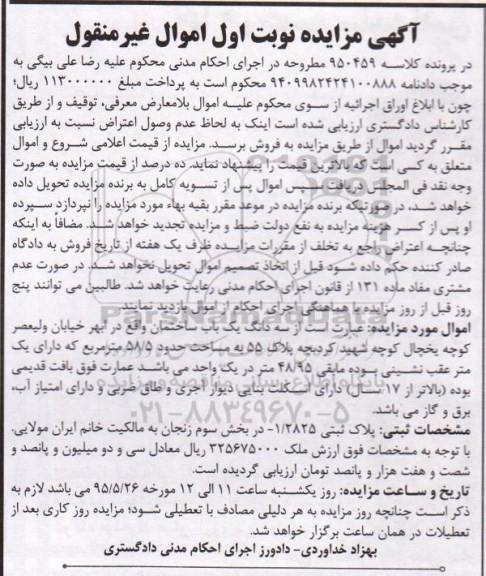 آگهی مزایده نوبت اول اموال غیرمنقول
در پرونده کلاسه ۹۵۰۴۵۹ مطروحه در اجرای احکام مدنی محکوم علیه رضا علی بیگی به
موجب دادنامه ۹۴۰۹۹۸۲۴۲۴۱۰۰۸۸۸ محکوم است به پرداخت مبلغ ۱۱۳۰۰۰۰۰۰ ریال؛
چون با ابلاغ اوراق اجرائیه از سوی محکوم علیه اموال بلامعارض معرفی، توقیف و از طریق
کارشناس دادگستری ارزیابی شده است اینک به لحاظ عدم وصول اعتراض نسبت به ارزیابی
مقرر گردید اموال از طریق مزایده به فروش برسد. مزایده از قیمت اعلامی شروع و اموال
متعلق به کسی است که بالاترین قیمت را پیشنهاد نماید. ده درصد از قیمت مزایده به صورت
وجه نقد فی المجلس دریافت سپس اموال پس از تسویه کامل به برنده مزایده تحویل داده
خواهد شد، در صورتیکه برنده مزایده در موعد مقرر بقیه بهاء مورد مزایده را نپردازد سپرده
او پس از کسر هزینه مزایده به نفع دولت ضبط و مزایده تجدید خواهد شد. مضافاً به اینکه
چنانچه اعتراض راجع به تخلف از مقررات مزایده ظرف یک هفته از تاریخ فروش به دادگاه
صادر کننده حکم داده شود قبل از اتخاذ تصمیم اموال تحویل نخواهد شد. در صورت عدم
مشتری مفاد ماده ۱۳۱ از قانون اجرای احکام مدنی رعایت خواهد شد. طالبین می توانند پنج
روز قبل از روز مزایده با هماهنگی اجرای احکام از اموال بازدید نمایند.
اموال مورد مزایده: عبارت است از سه دانگ یک باب ساختمان واقع در ابهر خیابان ولیعصر
کوچه یخچال کوچه شهید کردبچه پلاک ۵۵ به مساحت حدود ۵۸/۵ مترمربع که دارای یک
متر عقب نشینی بوده مابقی ۴۸/۹۵ متر در یک واحد می باشد عمارت فوق بافت قدیمی
بوده (بالاتر از ۱۷ سال) دارای اسکلت بنایی دیوار آجری و طاق ضربی و دارای امتیاز آب،
برق و گاز می باشد.
مشخصات ثبتی: پلاک ثبتی ۱/۲۸۲۵- در بخش سوم زنجان به مالکیت خانم ایران مولایی.
با توجه به مشخصات فوق ارزش ملک ۳۲۵۶۷۵۰۰۰ ریال معادل سی و دو میلیون و پانصد و
شصت و هفت هزار و پانصد تومان ارزیابی گردیده است.
تاریخ و ساعت مزایده: روز یکشنبه ساعت ۱۱ الی ۱۲ مورخه ۹۵/۵/۲۶ می باشد لازم به
ذکر است چنانچه روز مزایده به هر دلیلی مصادف با تعطیلی شود؛ مزایده روز کاری بعد از
تعطیلات در همان ساعت برگزار خواهد شد.
بهزاد خداوردی- دادورز اجرای احکام مدنی دادگستری
ParsNamadData
۰۲۱-۸۸۳۴۹۶۷۰-۵